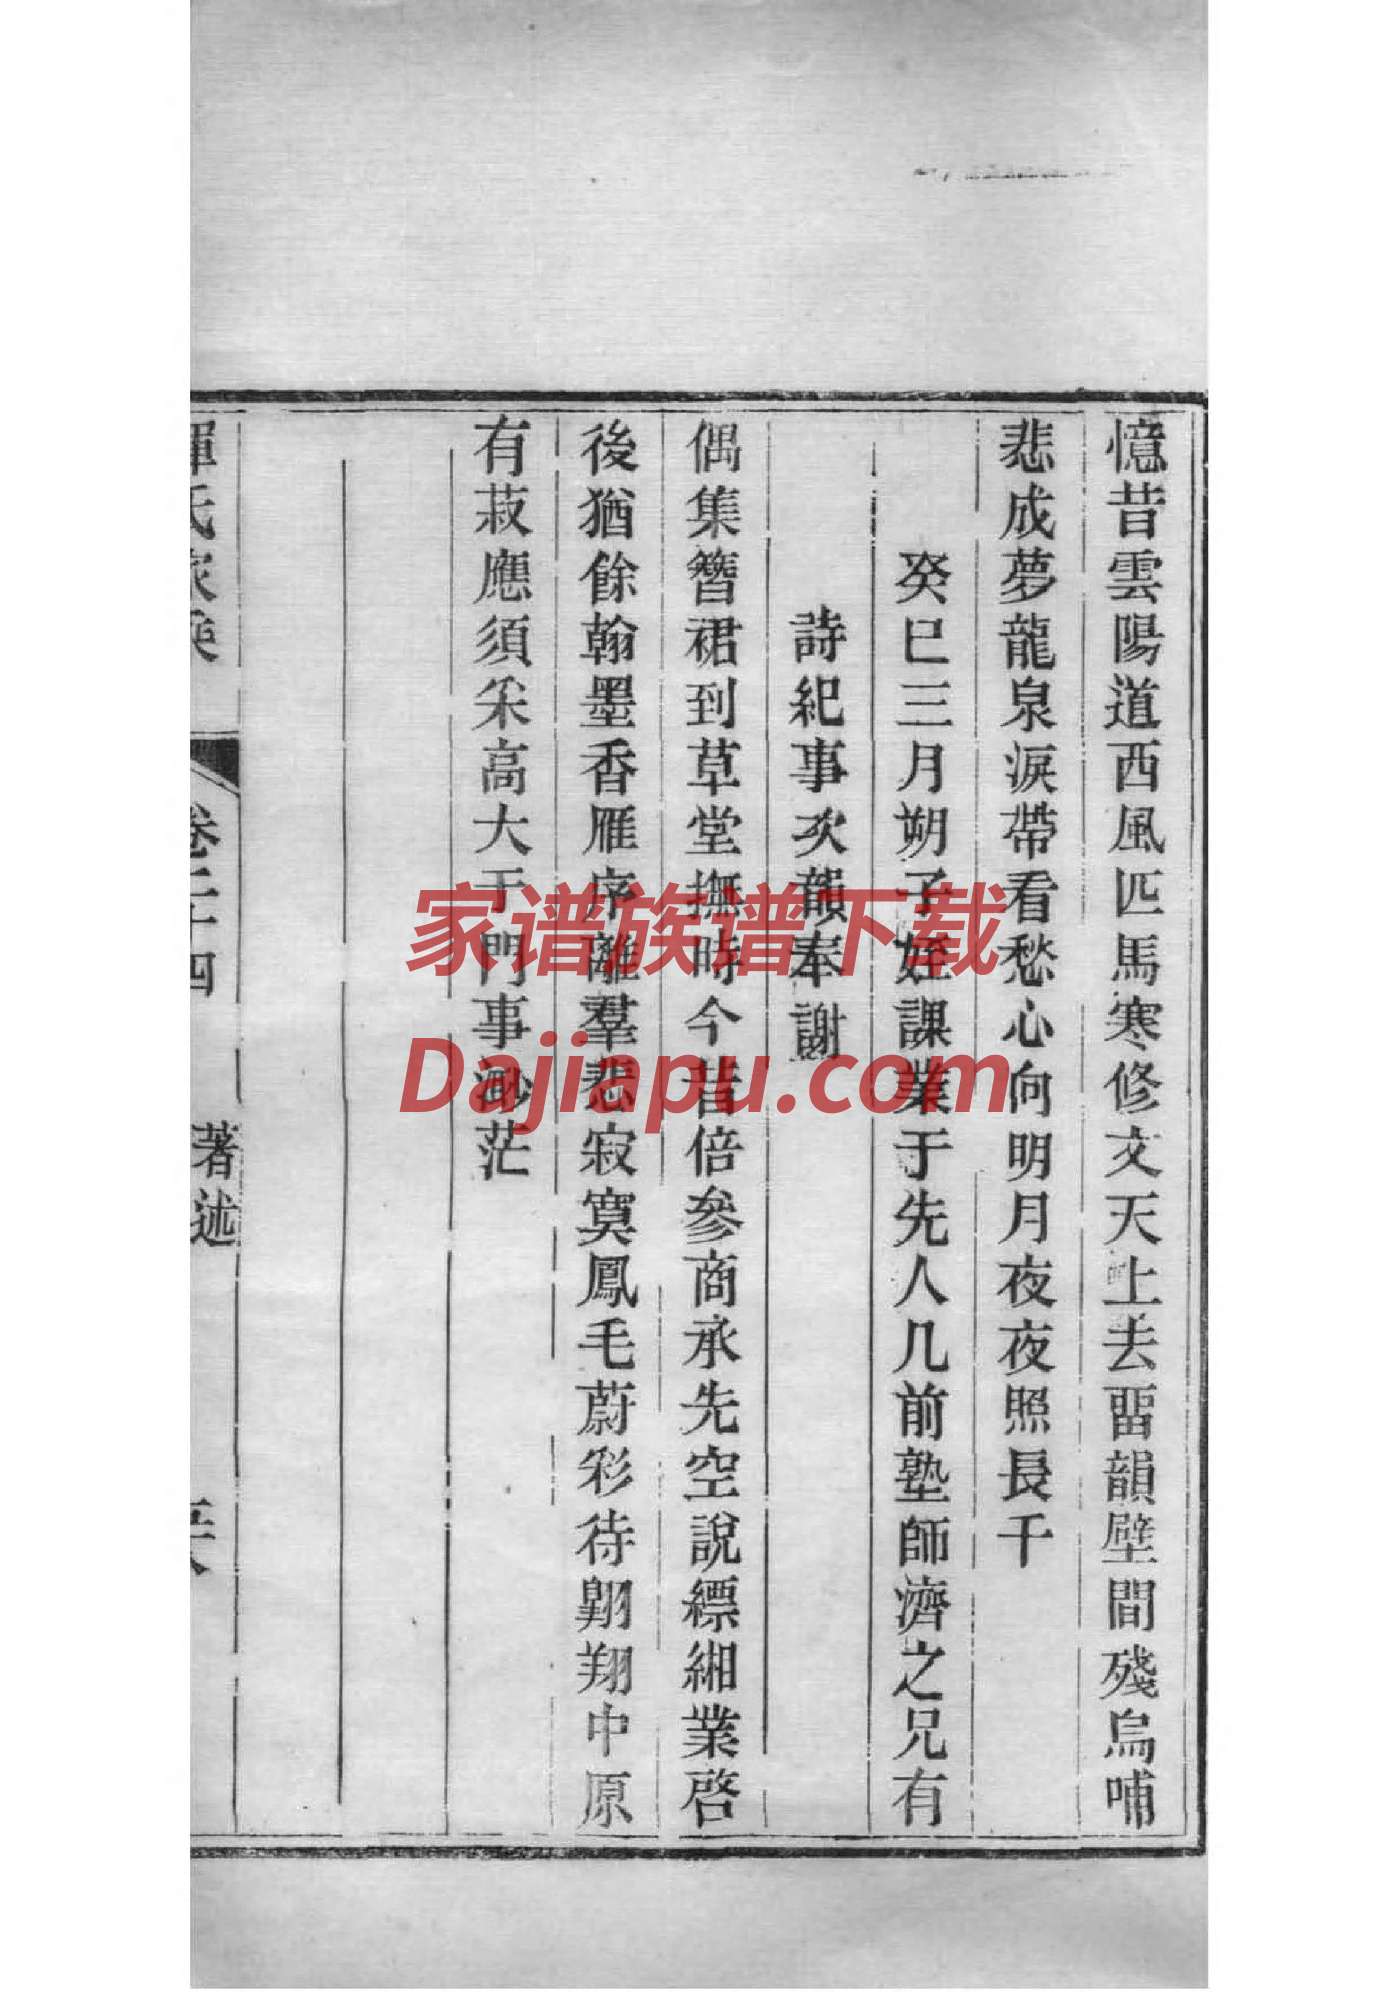 憶昔雲陽道西風匹馬寒修文天上去畱韻壁間殘烏哺
悲成夢龍泉淚帶看愁心向明月夜夜照長千
癸巳三月朔子姪課業于先人几前塾師濟之兄有
詩紀事次韻奉謝
偶集簪裙到草堂撫時今昔倍參商承先空說縹緗業啓
後猶餘翰墨香雁序離羣悲寂寞鳳毛蔚彩待翺翔中原
有菽應須采高大于門事渺茫
惲氏家乘
卷二十四
著述
家谱族谱下载
Dajiapu.com